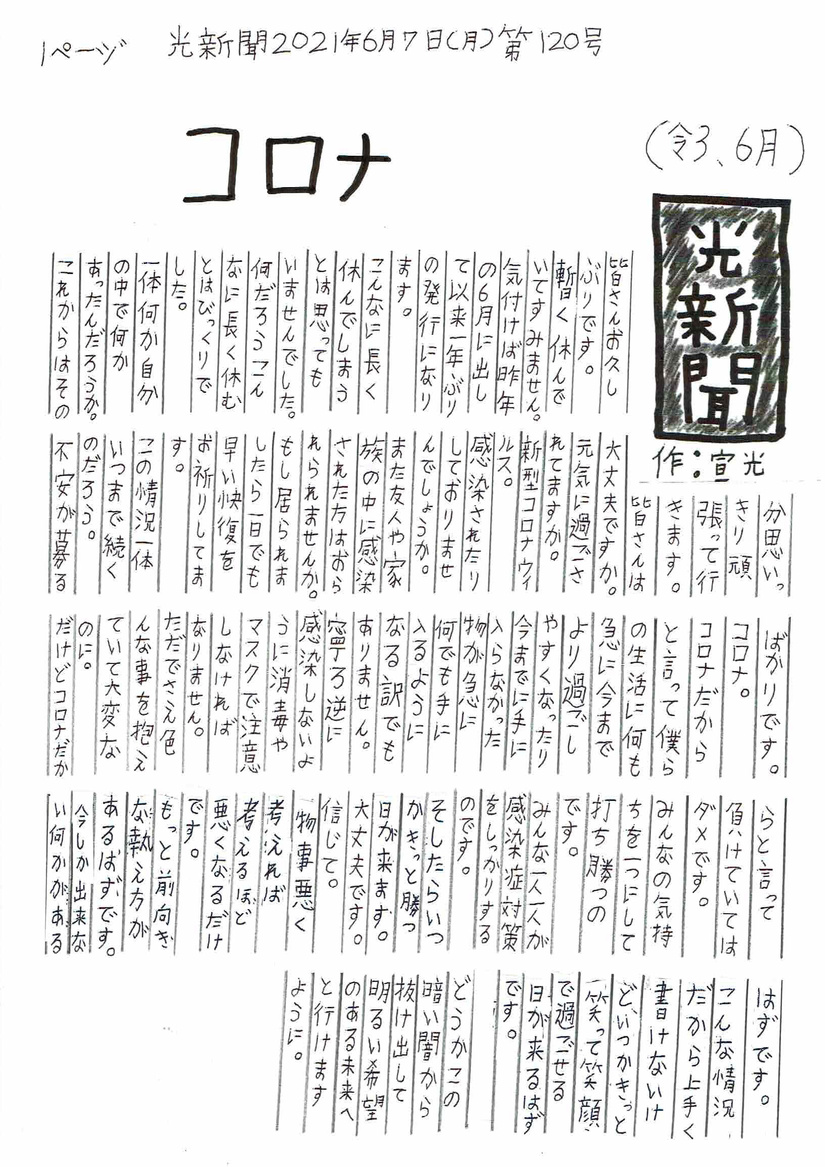 1ページ 光新聞2021年6月7日(月)第120号
コロナ
(令3、6月)
光新聞
作:宣光
皆さんお久し
ぶりです。
暫く休んで
いてすみません。
気付けば昨年
の6月に出し
て以来一年ぶり
の発行になり
ます。
こんなに長く
休んでしまう
とは思っても
いませんでした。
何だろうこん
なに長く休む
とはびっくりで
した。
一体何か自分
の中で何か
あったんだろうか。
これからはその
分思いっ
きり頑
張って行
きます。
皆さんは
大丈夫ですか。
元気に過ごさ
れてますか。
新型コロナウィ
ルス。
感染されたり
しておりませ
んでしょうか。
また友人や家
族の中に感染
された方はおら
れられませんか。
もし居られま
したら一日でも
早い快復を
お祈りしてま
す。
この情況一体
いつまで続く
のだろう。
不安が募る
ばかりです。
コロナ。
コロナだから
と言って僕ら
の生活に何も
急に今まで
より過ごし
やすくなったり
今までに手に
入らなかった
物が急に
何でも手に
入るように
なる訳でも
ありません。
寧ろ逆に
感染しないよ
うに消毒や
マスクで注意
しなければ
なりません。
ただでさえ色
んな事を抱え
ていて大変な
のに。
だけどコロナだか
らと言って
負けていては
ダメです。
みんなの気持
ちを一つにして
打ち勝つの
です。
みんな一人一人が
感染症対策
をしっかりする
のです。
そしたらいつ
かきっと勝つ
日が来ます。
大丈夫です。
信じて。
物事悪く
考えれば
考えるほど
悪くなるだけ
です。
もっと前向き
な考え方が
あるはずです。
今しか出来な
い何かがある
はずです。
こんな情況
だから上手く
書けないけ
どいつかきっと
笑って笑顔
で過ごせる
日が来るはず
です。
どうかこの
暗い闇から
抜け出して
明るい希望
のある未来へ
と行けます
ように。